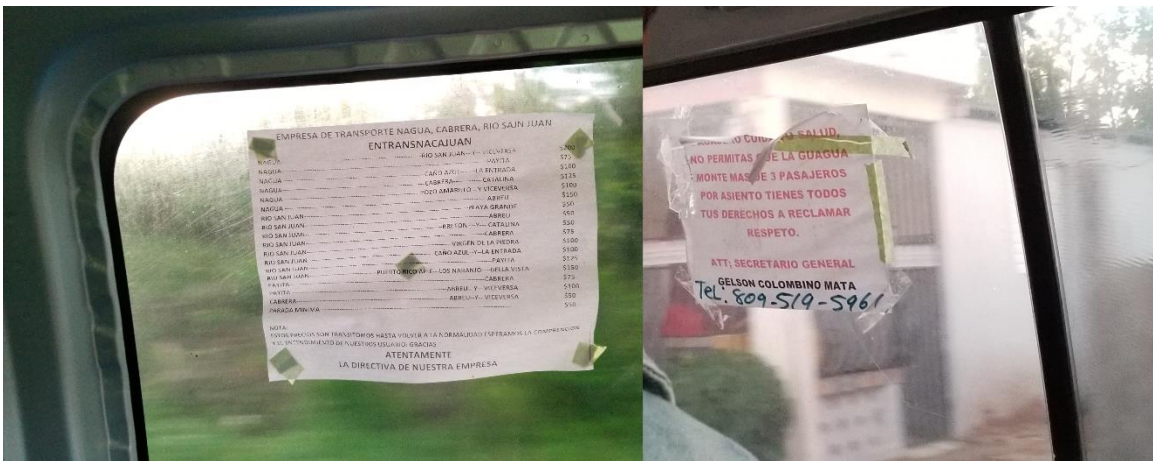 EMPRESA DE TRANSPORTE NAGUA, CABRERA, RIO SAJN JUAN
ENTRANSNACAJUAN
NAGUA RIO SAN JUAN---Y---VICEVERSA $200
NAGUA PAYITA $75
NAGUA CAÑO AZUL---LA ENTRADA $100
NAGUA CABRERA CATALINA $125
NAGUA POZO AMARILLO---Y VICEVERSA $100
NAGUA ABREU $150
RIO SAN JUAN PLAYA GRANDE $50
RIO SAN JUAN ABREU $50
RIO SAN JUAN ---Y--- CATALINA $50
RIO SAN JUAN CABRERA $75
RIO SAN JUAN VIRGEN DE LA PIEDRA $100
RIO SAN JUAN CAÑO AZUL--Y--LA ENTRADA $100
RIO SAN JUAN PAYITA $125
PAYITA PUERTO RICO LOS NARANJO BELLA VISTA $150
PAYITA CABRERA $75
CABRERA ABREU--Y--VICEVERSA $100
PARADA MINIMA $50
NOTA:
ESTOS PRECIOS SON TRANSITORIOS HASTA VOLVER A LA NORMALIDAD ESPERAMOS LA COMPRENCION
Y EL ENTENDIMIENTO DE NUESTROS USUARIO: GRACIAS
ATENTAMENTE
LA DIRECTIVA DE NUESTRA EMPRESA
SALUD,
NO PERMITAS QUE LA GUAGUA
MONTE MAS DE 3 PASAJEROS
POR ASIENTO TIENES TODOS
TUS DERECHOS A RECLAMAR
RESPETO.
ATT; SECRETARIO GENERAL
GELSON COLOMBINO MATA
TEL: 809-519-5961